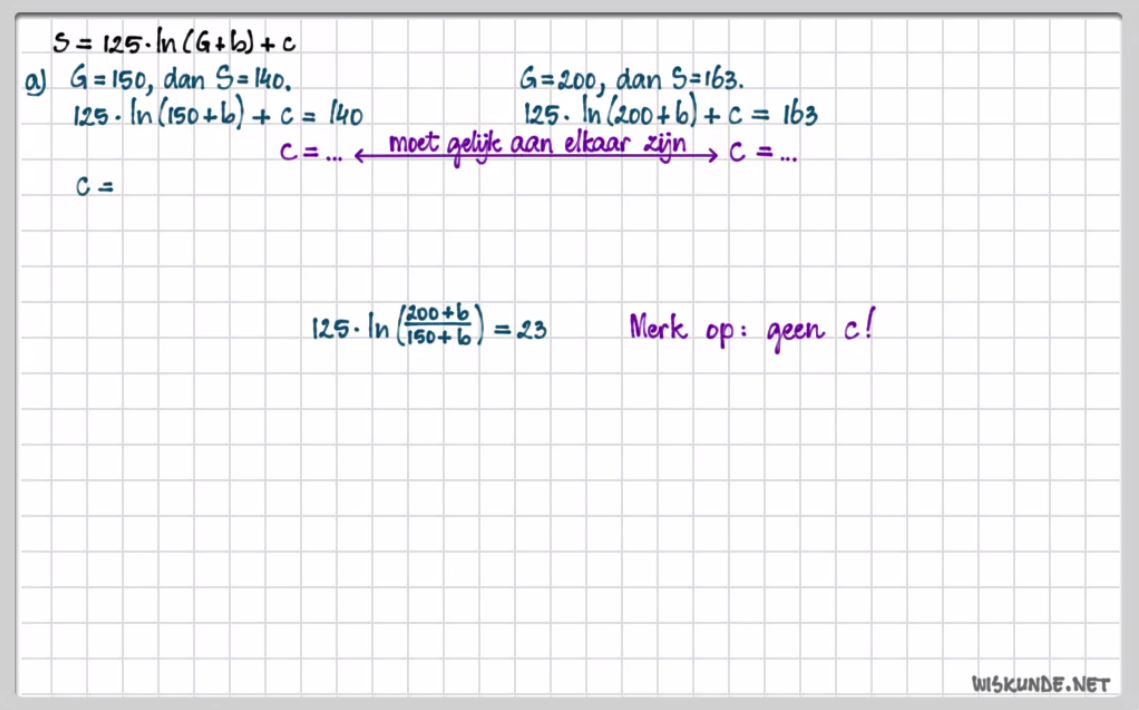 S = 125·ln(G+b) + c
a) G=150, dan S=140. G=200, dan S=163.
125·ln(150+b) + c = 140 125·ln(200+b) + c = 163
c = ... ⟷ moet gelijk aan elkaar zijn c = ...
c =
125·ln((200+b)/(150+b)) = 23 Merk op: geen c!
WISKUNDE.NET